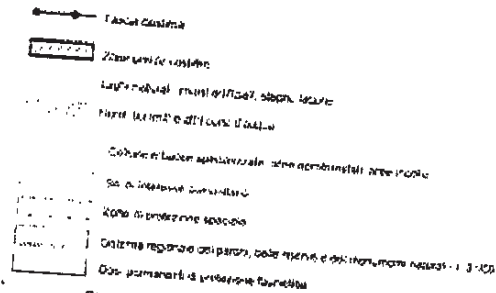 Fascia costiera
Zone umide costiere
Laghi naturali, invasi artificiali, stagni, lagune
Fiumi, torrenti e altri corsi d'acqua
Colture erbacee specializzate, aree agroforestali, aree incolte
Siti di interesse comunitario
Zone di protezione speciale
Sistema regionale dei parchi, delle riserve e dei monumenti naturali L.R.
Oasi permanenti di protezione faunistica